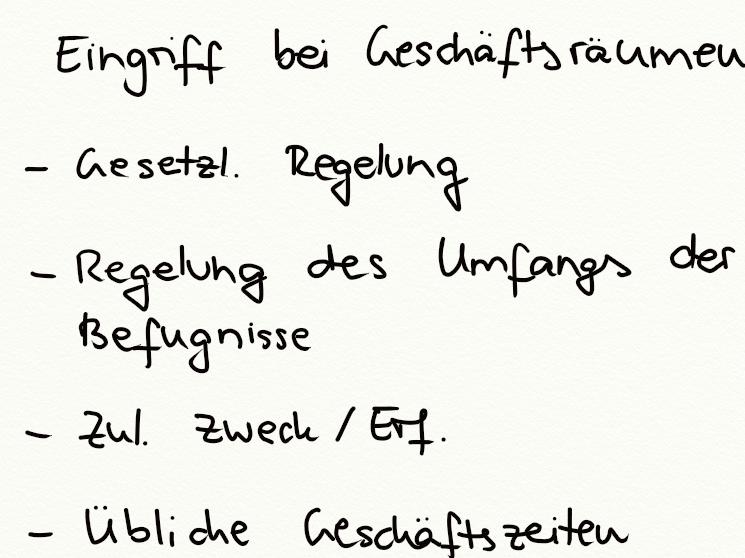 Eingriff bei Geschäftsräumen
- Gesetzl. Regelung
- Regelung des Umfangs der
Befugnisse
- Zul. Zweck / Erf.
- Übliche Geschäftszeiten